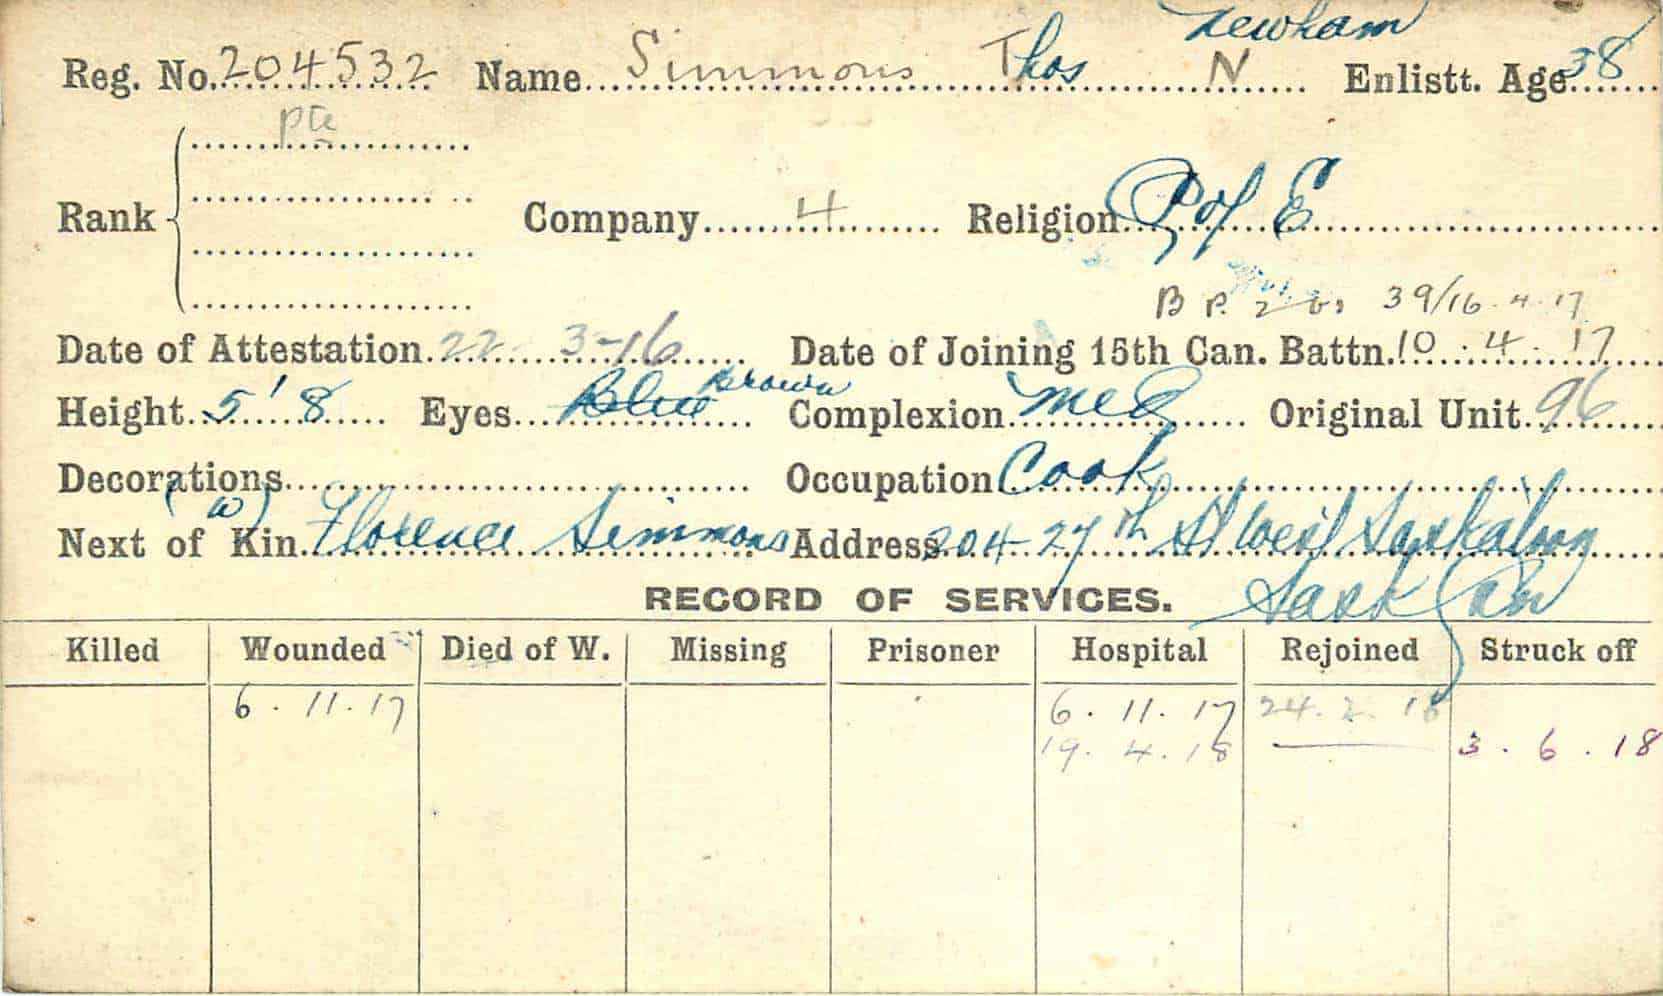 Newham
Reg. No. 204532 Name Simmons Thos N Enlistt. Age 38
Pte
Rank Company 4 Religion C of E
B P. 2 39/16.4.17
Date of Attestation 22 3-16 Date of Joining 15th Can. Battn. 10.4.17
Brown
Height 5' 8 Eyes Blue Complexion Med Original Unit 96
Decorations Occupation Cook
(w)
Next of Kin Florence Simmons Address 204-27th St West Saskatoon
RECORD OF SERVICES. Sask Can
Killed Wounded Died of W. Missing Prisoner Hospital Rejoined Struck off
6.11.17 6.11.17 24.2.18
19.4.18 3.6.18